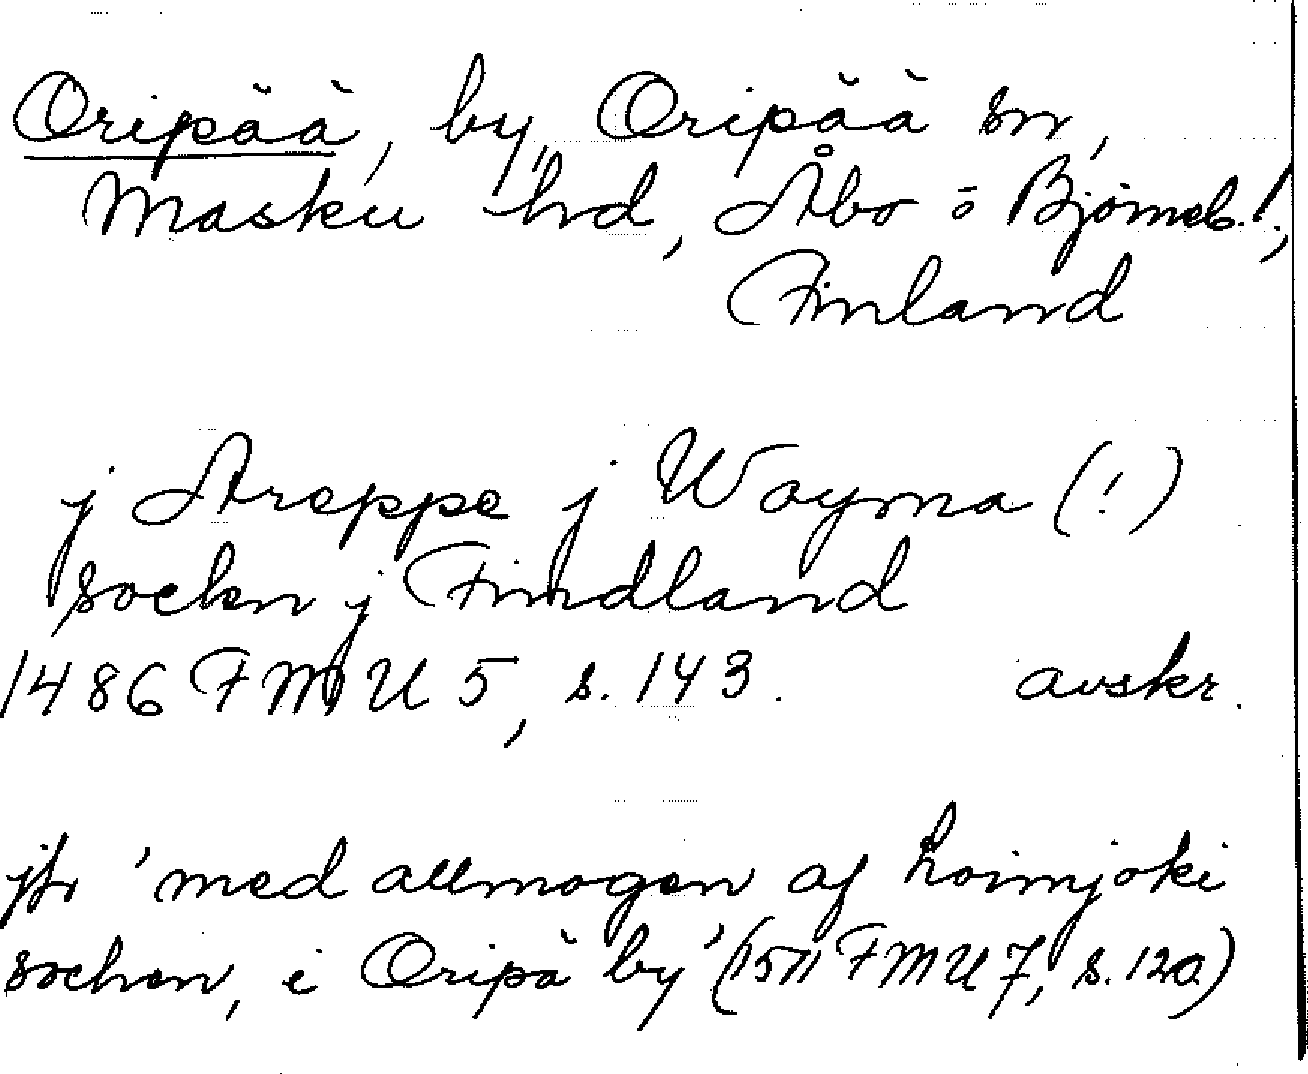 Oripää, by, Oripää sn,
Masku hrd, Åbo o Björneb. l.,
Finland
j Areppe j Woyma (!)
sockn j Findland
1486 FMU 5, s. 143. avskr.
jfr 'med allmogen af Loimjoki
sochen, i Oripä by' (1511 FMU 7, s. 120)